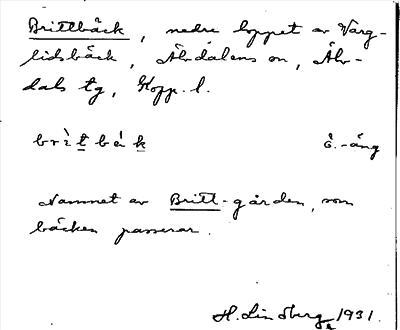 Brittbäck, nedre loppet av Varg-
lidsbäck, Älvdalens sn, Älv-
dals tg, Kopp. l.
brìt bäk
È.-äng
Namnet av Britt-gården, som
bäcken passerar.
H. Lindberg 1931.